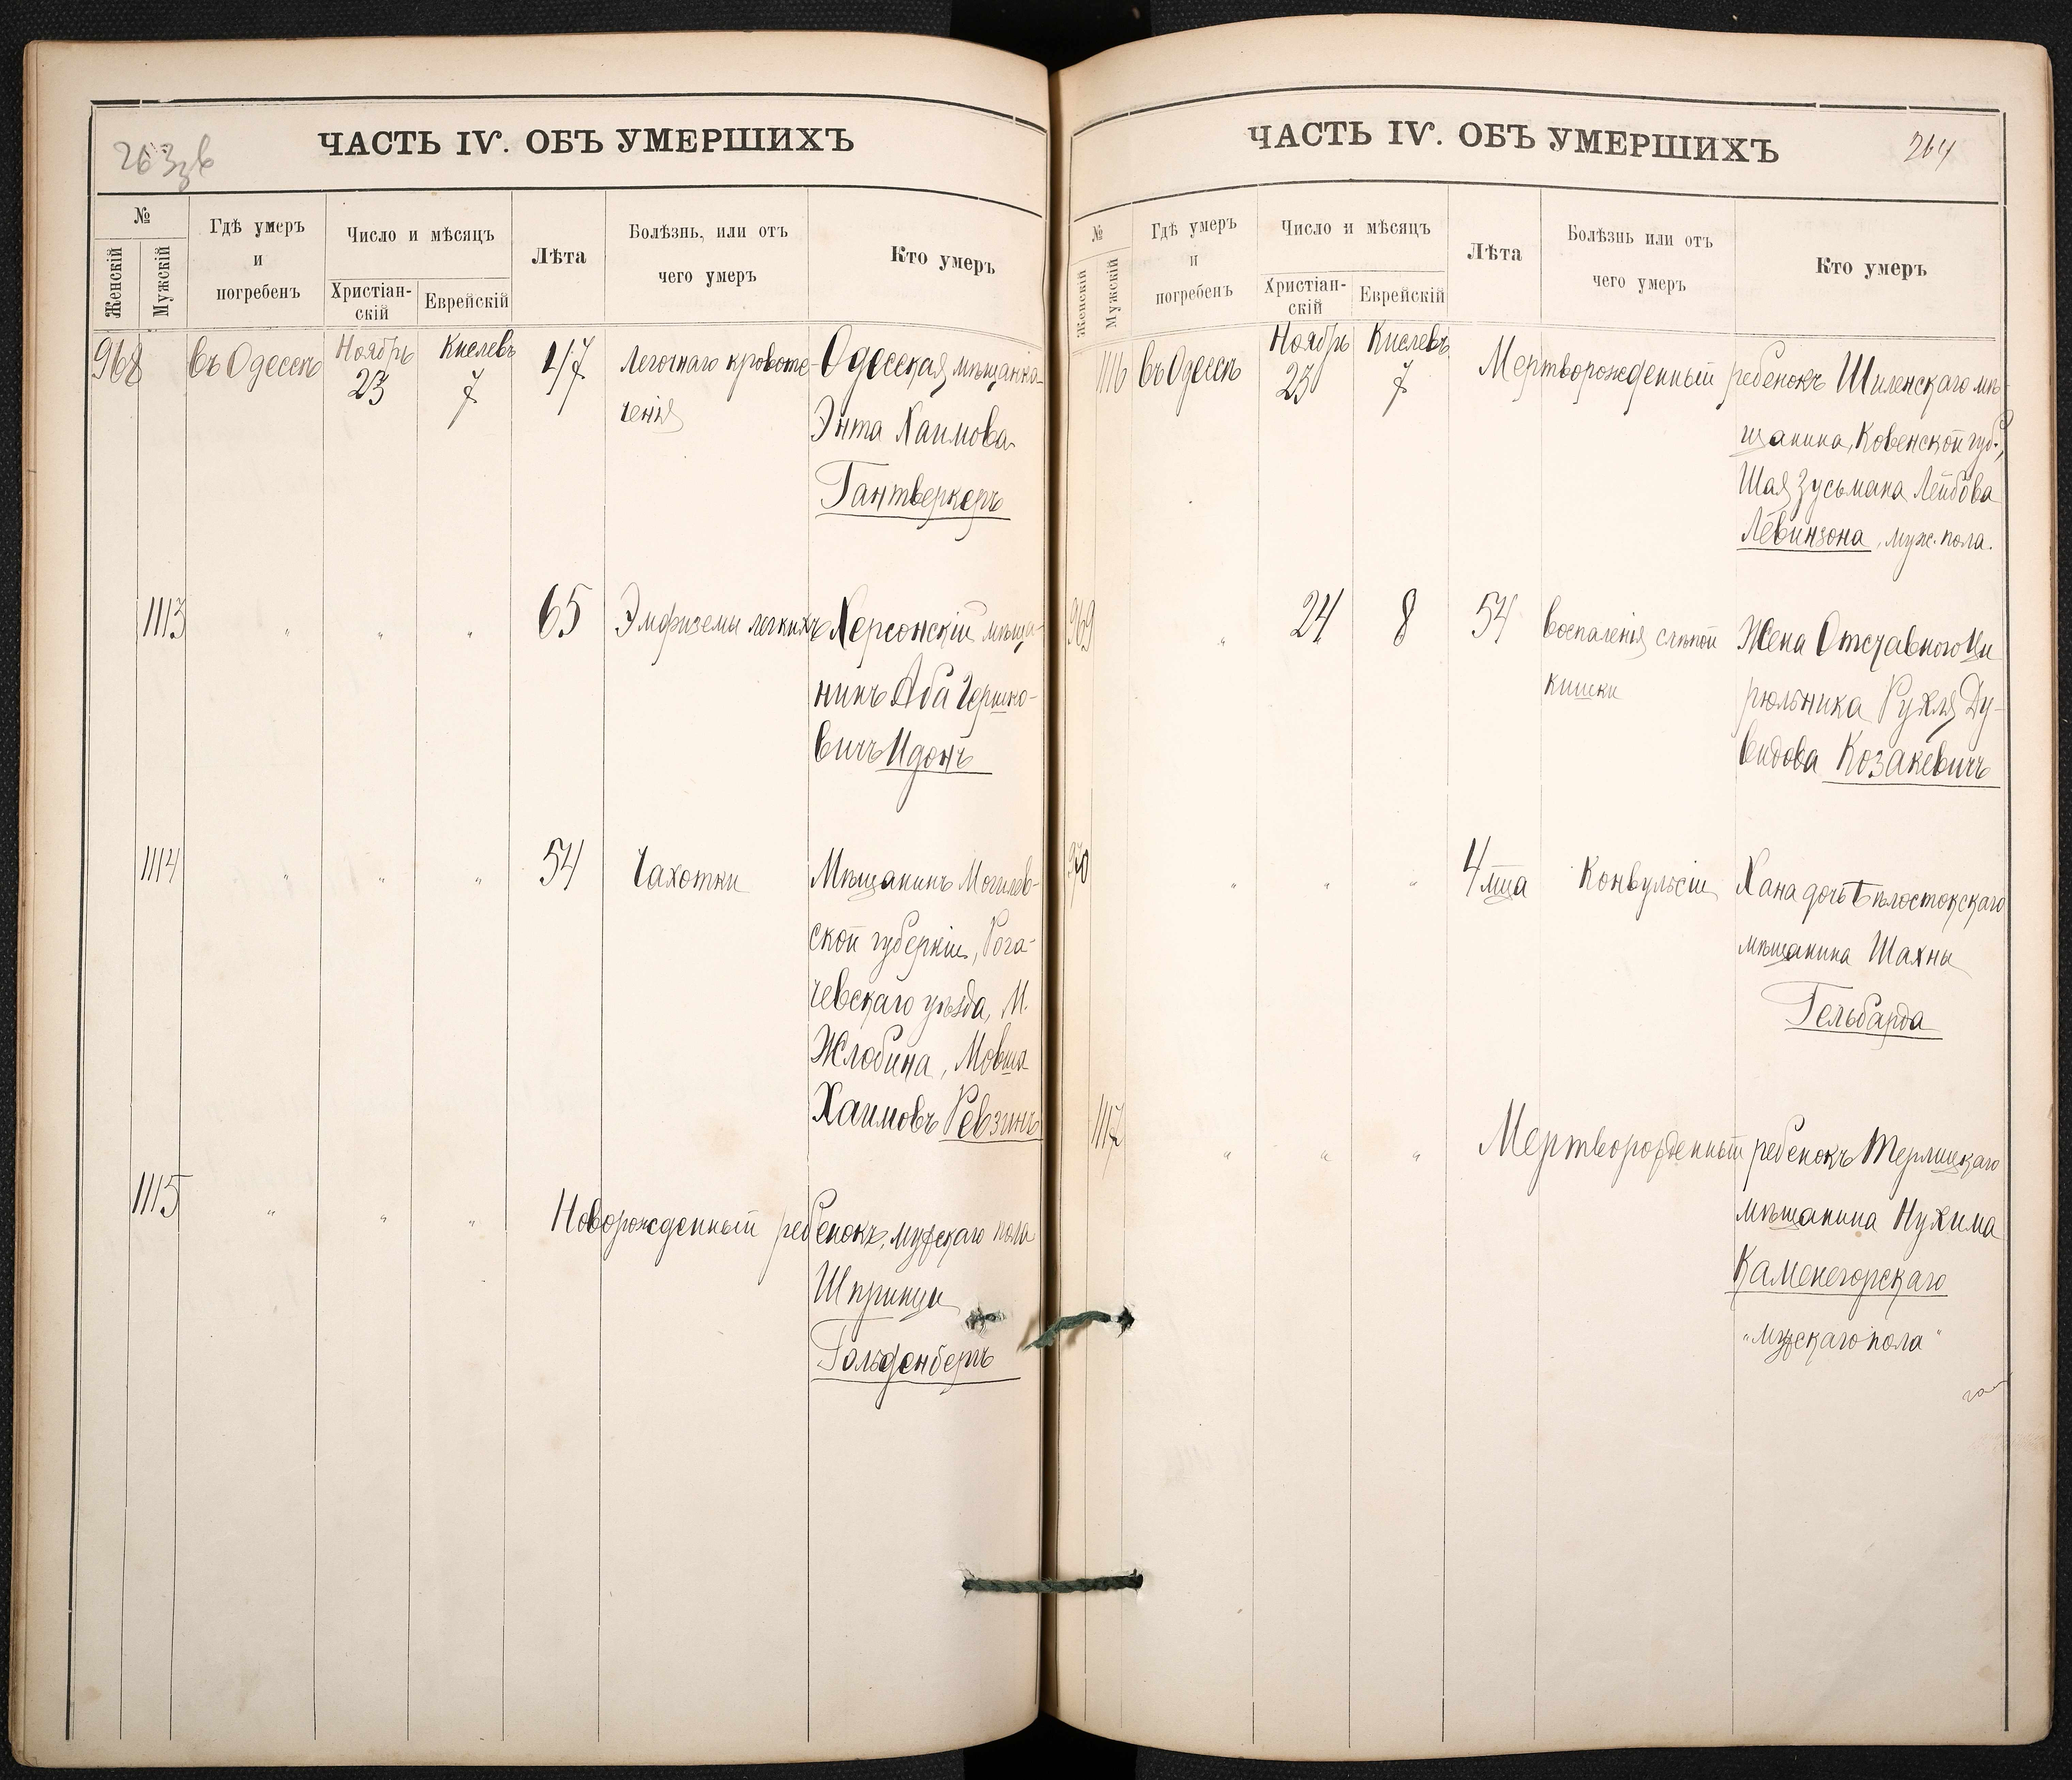 263 об
ЧАСТЬ IV. ОБЪ УМЕРШИХЪ
№
Женскій
Мужскій
Гдѣ умеръ
и
погребенъ
Число и мѣсяцъ
Христіан-
скій
Еврейскій
Лѣта
Болѣзнь, или отъ
чего умеръ
Кто умеръ
968 въ Одессѣ Ноябрь Кислевъ 47 Легочнаго кровоте- Одесская мѣщанка
23 7 ченія
Энта Хаимова
Гантверкеръ
1113 " " " 65 Эмфиземы легкихъ Херсонскій мѣща-
нинъ Аба Гершко-
вичъ Идонъ
1114 " " " 54 Чахотки Мѣщанинъ Могилев-
ской губерніи, Рога-
чевскаго уѣзда, М.
Жлобина, Мовша
Хаимовъ Ревзинъ
1115 " " " Новорожденный ребенокъ, мужскаго пола
Шпринци
Гольденбергъ
ЧАСТЬ IV. ОБЪ УМЕРШИХЪ
264
№
Женскій
Мужскій
Гдѣ умеръ
и
погребенъ
Число и мѣсяцъ
Христіан-
скій
Еврейскій
Лѣта
Болѣзнь или отъ
чего умеръ
Кто умеръ
1116 въ Одессѣ Ноябрь Кислевъ Мертворожденный ребенокъ Шиленскаго мѣ-
23 7
щанина, Ковенской губ.,
Шая Зусьмана Лейбова
Левинзона, муж. пола.
969 " 24 8 54 Воспаленія слѣпой Жена Отставного Ци
кишки рюльника Рухля Ду-
видова Козакевичъ
970 " " " 4 мца Конвульсіи Хана дочь Бѣлостокскаго
мѣщанина Шахны
Гельбарда
1117 " " " Мертворожденный ребенокъ Терлицкаго
мѣщанина Нухима
Каменегорскаго
"мужскаго пола"